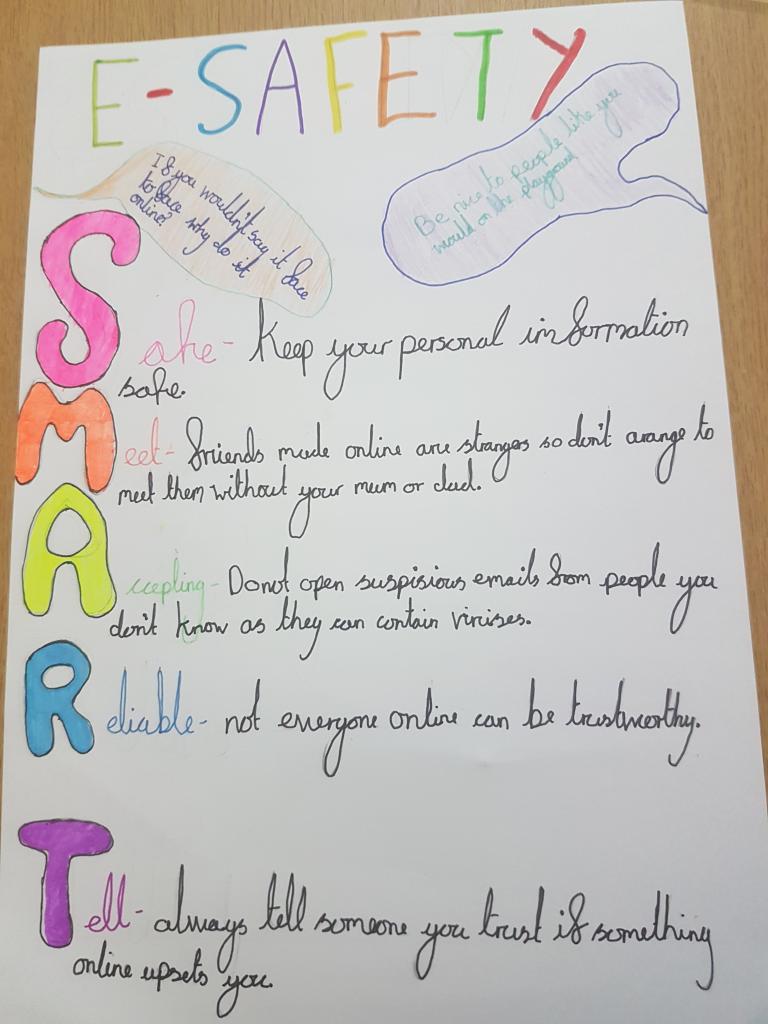 E-SAFETY
If you wouldn't say it face
to face why do it
online?
Be nice to people like you
would on the playground
Safe- Keep your personal information
safe.
Meet- friends made online are strangers so don't arange to
meet them without your mum or dad.
Accepting- Do not open suspisious emails from people you
don't know as they can contain viruses.
Reliable- not everyone online can be trustworthy.
Tell- always tell someone you trust if something
online upsets you.